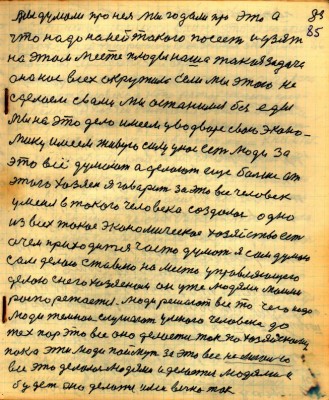 мы думали про нея мы годами про это а
что надо на ней такого посеет и узят
на этом месте люди наша такая задача
она нас всех окружила если мы этого не
сделаем с вами мы останимся без еды
мы на это дело имеем у водворе свою эконо-
мику имеем живую силу у нас ест люди за
это всё думают а делают еще больше от
этого хозяен я говарит за это все человек
умен в такого человека создалос одно
из всех такое экономическое хозяйство ест
о чем приходится часто думат я сам думаю
сам делаю ставлю на место управляющего
делаю с него хозяеном он уже людями моими
распоряжается. люди решают все то чего надо
люди темные слушают умного человека до
тех пор это все оно делается так по хозяйскому
пока эти люди поймут за это все не много
все это делалос людями и делается людями и
будет оно делатся или вечно так
84
85